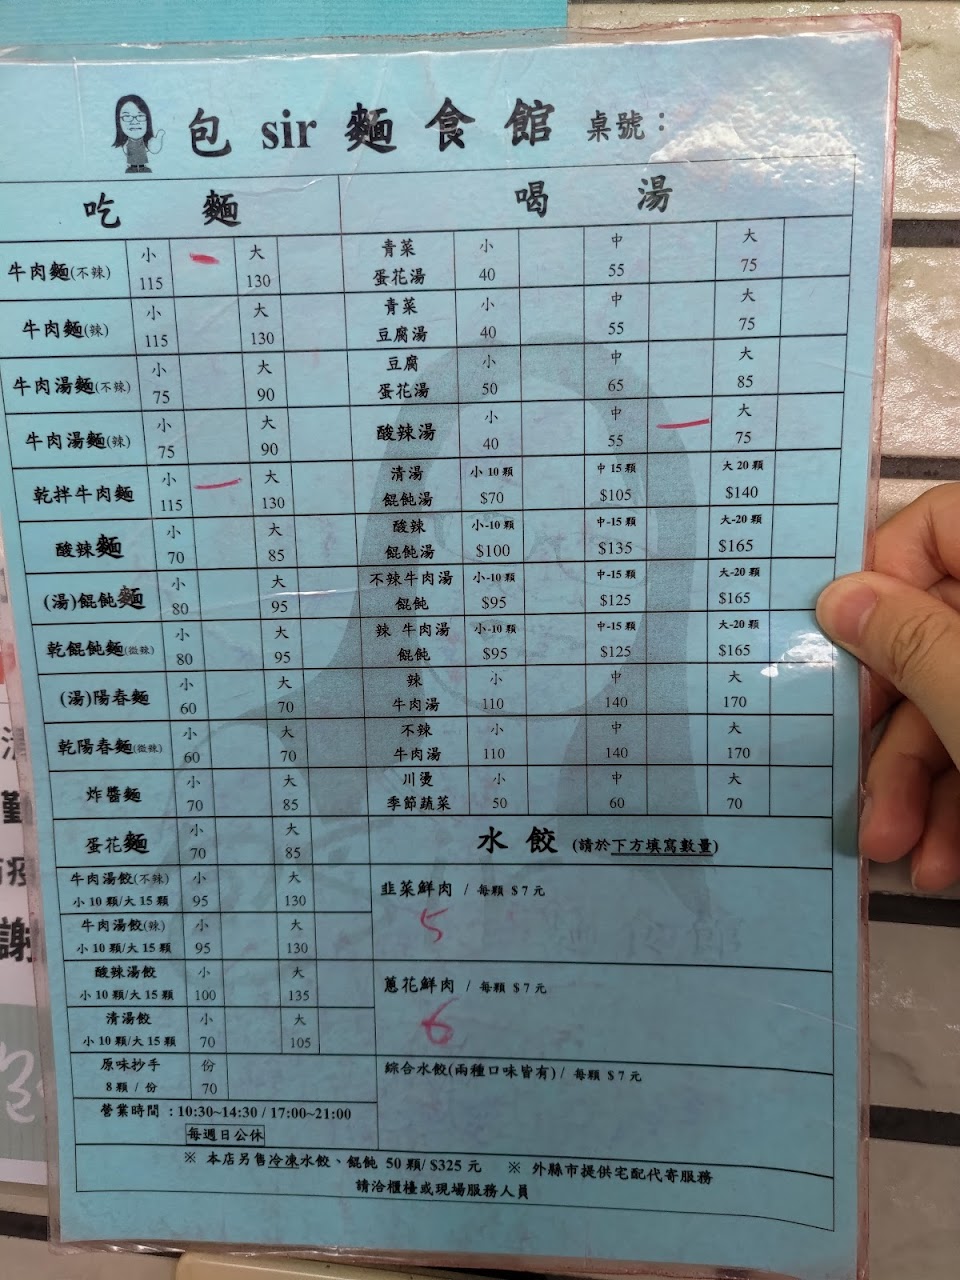 包 sir 麵食館 桌號：
吃 麵
牛肉麵(不辣) 小 115 大 130
牛肉麵(辣) 小 115 大 130
牛肉湯麵(不辣) 小 75 大 90
牛肉湯麵(辣) 小 75 大 90
乾拌牛肉麵 小 115 大 130
酸辣麵 小 70 大 85
(湯)餛飩麵 小 80 大 95
乾餛飩麵(微辣) 小 80 大 95
(湯)陽春麵 小 60 大 70
乾陽春麵(微辣) 小 60 大 70
炸醬麵 小 70 大 85
蛋花麵 小 70 大 85
牛肉湯餃(不辣) 小 大
小 10 顆/大 15 顆 95 130
牛肉湯餃(辣) 小 大
小 10 顆/大 15 顆 95 130
酸辣湯餃 小 大
小 10 顆/大 15 顆 100 135
清湯餃 小 大
小 10 顆/大 15 顆 70 105
原味抄手 份
8 顆 / 份 70
營業時間 ：10:30~14:30 / 17:00~21:00
每週日公休
喝 湯
青菜 小 中 大
蛋花湯 40 55 75
青菜 小 中 大
豆腐湯 40 55 75
豆腐 小 中 大
蛋花湯 50 65 85
酸辣湯 小 40 中 55 大 75
清湯 小 10 顆 中 15 顆 大 20 顆
餛飩湯 $70 $105 $140
酸辣 小-10 顆 中-15 顆 大-20 顆
餛飩湯 $100 $135 $165
不辣牛肉湯 小-10 顆 中-15 顆 大-20 顆
餛飩 $95 $125 $165
辣 牛肉湯 小-10 顆 中-15 顆 大-20 顆
餛飩 $95 $125 $165
辣 小 中 大
牛肉湯 110 140 170
不辣 小 中 大
牛肉湯 110 140 170
川燙 小 中 大
季節蔬菜 50 60 70
水餃 (請於下方填寫數量)
韭菜鮮肉 / 每顆 $7 元
5
蔥花鮮肉 / 每顆 $7 元
6
綜合水餃(兩種口味皆有) / 每顆 $7 元
※ 本店另售冷凍水餃、餛飩 50 顆/ $325 元 ※ 外縣市提供宅配代寄服務
請洽櫃檯或現場服務人員
謝